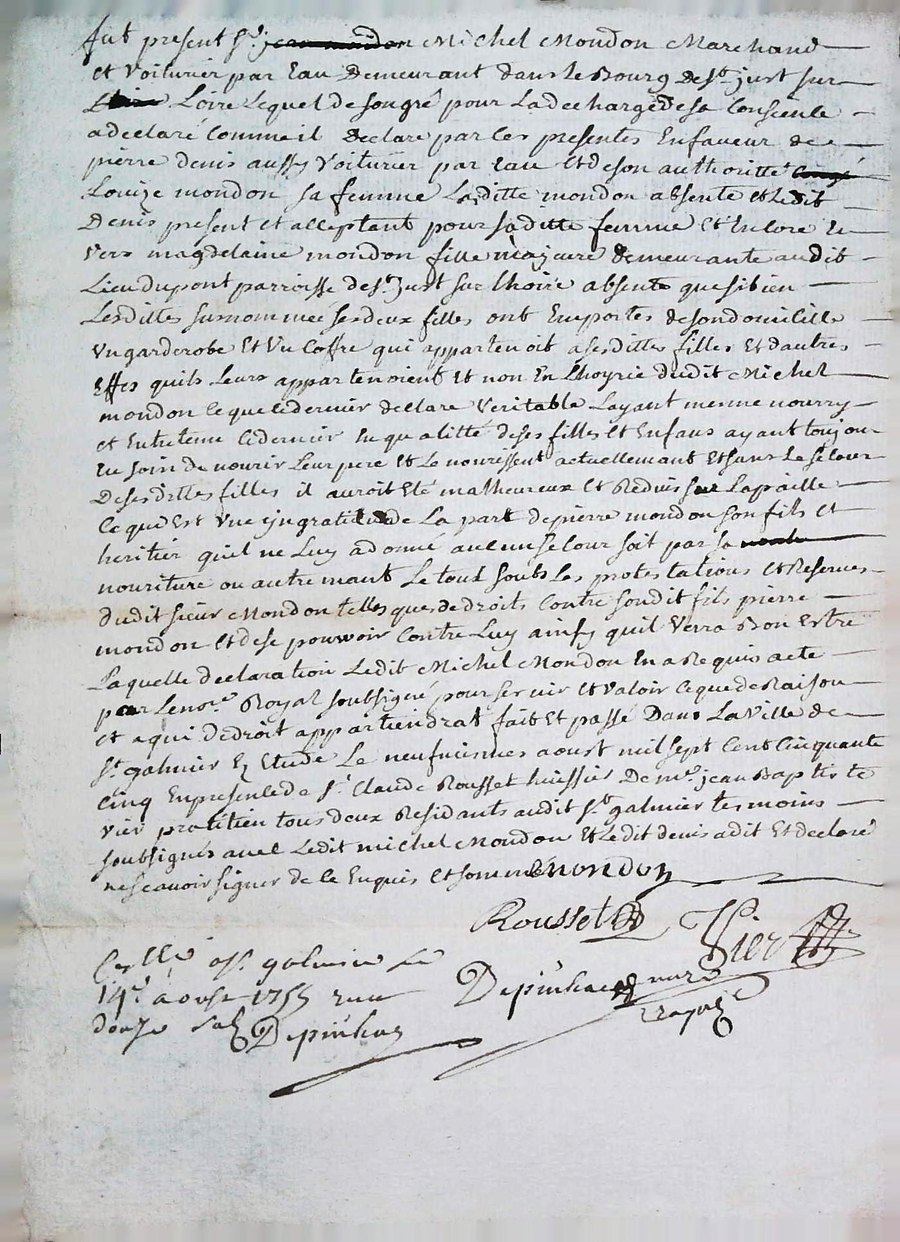 fut present Sr. jean mondon Michel Mondon Marchand
et Voiturier par Eau Demeurant dans le Bourg de St. just sur
Loire Lequel de son gré pour La decharge de sa Conscience
a declaré Comme il Declare par Ces presentes En faveur de
pierre denis aussy Voiturier par Eau Et de son authoritté
Louize mondon sa femme Laditte mondon absente et Ledit
Denis present et acceptant pour saditte femme Et Encore En
vers magdelaine mondon fille majeure demeurante audit
Lieu du pont parroisse de St. Just sur Lhoire absente que si bien
Lesdittes surnommee ses deux filles ont Emportes de son domicille
Un garderobe Et Un Coffre qui appartenoit a sesdittes filles Et dautres
Effes quils Leurs appartenoient Et non En Lhoyrie dudit Michel
mondon Ce que Ce dernier declare Veritable Layant mesme nourry
et Entretenu Ce dernier En qualitté de ses filles Et Enfans ayant toujour
Eu soin de nourir Leur pere Et Le nouressent actuellemant Et sans Le secour
De sesdittes filles il auroit Eté malheureux Et Reduis sur La paille
Ce qui Est Une ingratitude de La part de pierre mondon son fils et
heritier quil ne Luy a donné aucun secour soit par sa
nouriture ou autremant Le tout soubs Les protestations Et Reserves
dudit sieur Mondon telles que de droits Contre sondit fils pierre
mondon Et de se pourvoir Contre Luy ainsy quil Verra Bon Estre
Laquelle declaration Ledit Michel Mondon En a Requis acte
par Le nore. Royal soubsigné pour servir Et Valoir Ce que de Raison
et a qui De droit appartiendrat fait Et passé Dans La Ville de
St. galmier Ez Etude Le neufviesmes aoust mil sept Cent Cinquante
cinq En presence de Sr. Claude Rousset huissier De me. jean Baptiste
Vier pratitien tous deux Residants audit St. galmier tesmoins
soubsignés avec Ledit michel Mondon Et Ledit denis a dit Et declaré
ne scavoir signer de Ce Enquis Et sommé mondon
Rousset Vier
Collé a St. galmier Le
14e. aoust 1755 recu
douze sols Depinhac
Depinhac nore
royal